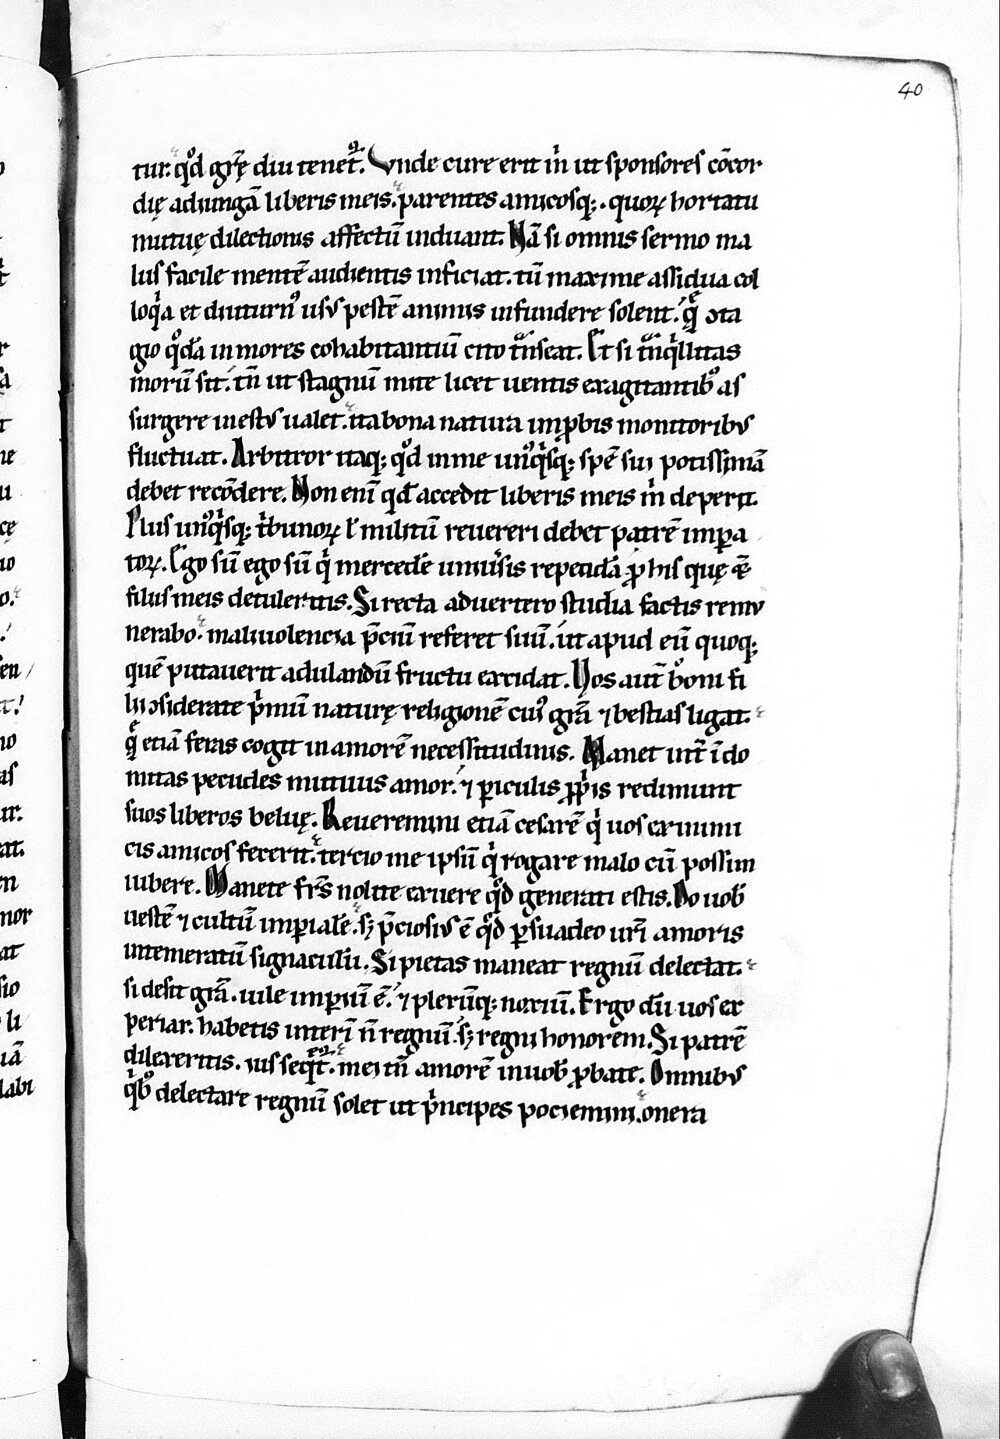 40
tur. qd̓ grę̄ diu tenet᷑. Vnde cure erit m̓ ut sponsores cōcor
dię adiungā liberis meis. parentes amicosq;. quoꝝ hortatu
mutuę dilectionis affectū induant. Nā si omnis sermo ma
lus facile mentē audientis inficiat. tū maxime assidua col
loq̓a et diuturn᷒ usus pestē animis infundere solent. q̄ ↄta
gio qͦdā in mores cohabitantiū cito tͣnseat. Et si tͣnqͥllitas
morū sit. tn̄ ut stagnū mite licet uentis exagitantib᷒ as
surgere in estus ualet. ita bona natura imꝓbis monitoribus
fluctuat. Arbitror itaq; qd̓ in me un᷒qͥsq; spē sui potissimā
debet recōdere. Non enī qd̓ accedit liberis meis m̓ deperit.
Plus un᷒qͥsq; tͥbunoꝝ l̄ militū reuereri debet patrē impͣa
toꝝ. Ego sū ego sū qͥ mercedē uniūsis rependā ꝓ his quę
filiis meis detuleritis. Si recta aduertero studia factis remu
nerabo. maliuolencia p̄ciū referet suū. ut apud eū quoq;
quē putauerit adulandū fructu excidat. Vos aut̄ ƀoni fi
lii ↄsiderate pͥmū naturę religionē cui᷒ grā ⁊ bestias ligat.
q̄ etiā feras cogit in amorē necessitudinis. Manet int̄ ido
mitas pecudes mutuus amor. ⁊ ꝑiculis ꝓpͥis redimunt
suos liberos beluę. Reueremini etiā cesarē qͥ uos ex inimi
cis amicos fecerit. tercio me ipsū qͥ rogare malo cū possim
iubere. Manete frs̄ nolite exuere qd̓ generati estis. Do uob̄
uestē ⁊ cultū imꝑialē. sꝫ p̄ciosius ē qd̓ ꝑsuadeo uri̅ amoris
intemeratū signaculū. Si pietas maneat regnū delectat.
si desit grā. uile imꝑiū ē. ⁊ plerūq; noxiū. Ergo dū uos ex
periar. habetis interī n̄ regnū. sꝫ regni honorem. Si patrē
dilexeritis. ius seqͥt᷑. mei tn̄ amorē in uob̄ ꝓbate. Omnibus
qͥb᷒ delectare regnū solet ut pͥncipes pociemini. onera